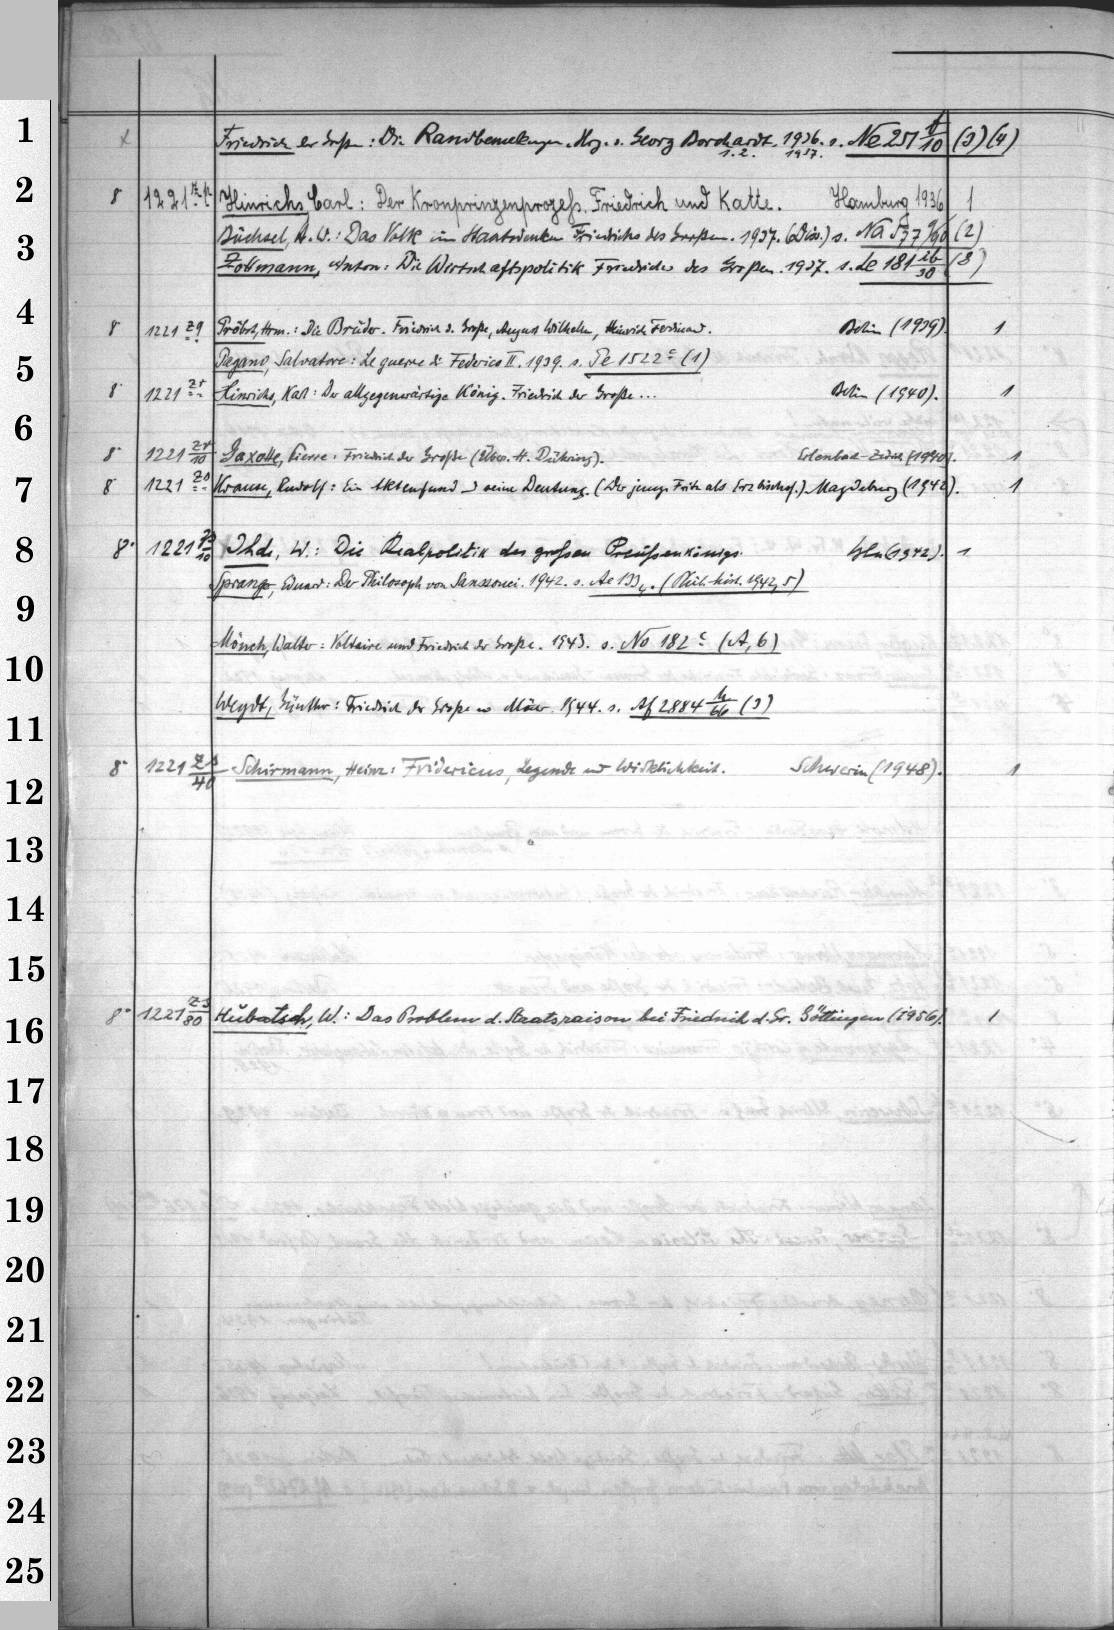 1
x Friedrich der Große: Die Randbemerkungen. Hrg. v. Georg Borchardt. 1.2. 1936. 1937. s. Ne 251 f/10 (3)(4)
2
8 1221 zp Hinrichs, Carl: Der Kronprinzenprozeß. Friedrich und Katte. Hamburg 1936 1
Büchsel, H. W.: Das Volk im Staatsdenken Friedrichs des Großen. 1937. (Diss.) s. Na 537 /90 (2)
3
Zottmann, Anton: Die Wirtschaftspolitik Friedrichs des Großen. 1937. s. Le 181 ib/30 (8)
4
8 1221 zq Pröbst, Hrm.: Die Brüder. Friedrich d. Große, August Wilhelm, Heinrich, Ferdinand. Berlin (1939). 1
5
Pagano, Salvatore: Le guerre di Federico II. 1939. s. Pe 1522 c (1)
8 1221 zr Hinrichs, Karl: Der allgegenwärtige König. Friedrich der Große... Berlin (1940). 1
6
8 1221 zr/10 Gaxotte, Pierre: Friedrich der Große (Übers. H. Dühring). Erlenbach-Zürich (1940). 1
7
8 1221 zs Krause, Rudolf: Ein Aktenfund u seine Deutung. (Der junge Fritz als Erzbischof.) Magdeburg (1942). 1
8
8° 1221 zs/10 Ihde, W.: Die Realpolitik des großen Preußenkönigs. Bln (1942). 1
Spranger, Eduard: Der Philosoph von Sanssouci. 1942. s. Ae 133 4. (Phil.-hist. 1942, 5)
9
Mönch, Walter: Voltaire und Friedrich der Große. 1943. s. No 182 c (A, 6)
10
Weydt, Günther: Friedrich der Große u Möser. 1944. s. Af 2884 h/66 (3)
11
8 1221 zs/40 Schirmann, Heinz: Fridericus, Legende und Wirklichkeit. Schwerin (1948). 1
12
13
14
15
8° 1221 zs/80 Hubatsch, W.: Das Problem d. Staatsraison bei Friedrich d. Gr. Göttingen (1956). 1
16
17
18
19
20
21
22
23
24
25